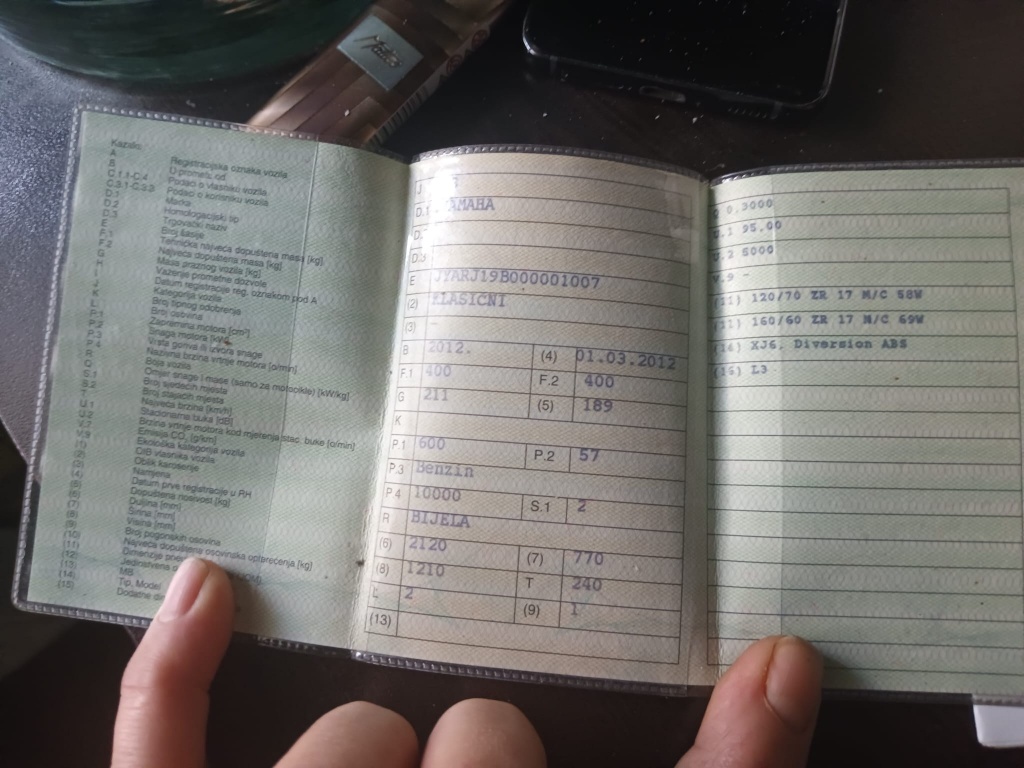 Kazalo:
A Registracijska oznaka vozila
B O prometu od
C.1.1-C.4 Podaci o vlasniku vozila
C.3.1-C.3.3 Podaci o korisniku vozila
D.1 Marka
D.2 Homologacijski tip
D.3 Trgovački naziv
E Broj šasije
F.1 Tehnička najveća dopuštena masa [kg]
F.2 Najveća dopuštena masa [kg]
G Masa praznog vozila [kg]
H Važenje prometne dozvole
I Datum registracije reg. oznakom pod A
J Kategorija vozila
K Broj tipnog odobrenja
L Broj osovina
P.1 Zapremina motora [cm³]
P.2 Snaga motora [kW]
P.3 Vrsta goriva ili izvora snage
P.4 Nazivna brzina vrtnje motora [o/min]
R Boja vozila
Q Omjer snage i mase (samo za motocikle) [kW/kg]
S.1 Broj sjedećih mjesta
S.2 Broj stajaćih mjesta
T Najveća brzina [km/h]
U.1 Stacionarna buka [dB]
U.2 Brzina vrtnje motora kod mjerenja stac. buke [o/min]
V.7 Emisija CO₂ [g/km]
V.9 Ekološka kategorija vozila
(1) OIB vlasnika vozila
(2) Oblik karoserije
(3) Namjena
(4) Datum prve registracije u RH
(5) Dopuštena nosivost [kg]
(6) Duljina [mm]
(7) Širina [mm]
(8) Visina [mm]
(9) Broj pogonskih osovina
(10) Najveća dopuštena osovinska opterećenja [kg]
(11) Dimenzije
(12) Jedinstvena
(13) MB
(14) Tip, Model
(15) Dodatne
J
D.1 YAMAHA
D.2
D.3
E JYARJ19B000001007
(2) KLASIČNI
(3) -
B 2012. (4) 01.03.2012
F.1 400 F.2 400
G 211 (5) 189
K
P.1 600 P.2 57
P.3 Benzin
P.4 10000 S.1 2
R BIJELA
(6) 2120 (7) 770
(8) 1210 T 240
L 2 (9) 1
(13)
Q 0,3000
U.1 95,00
U.2 5000
V.9 -
(11) 120/70 ZR 17 M/C 58W
(11) 160/60 ZR 17 M/C 69W
(14) XJ6, Diversion ABS
(16) L3